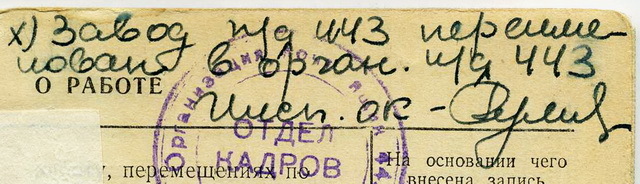 х) Завод п/я 443 переиме-
нован в орган. п/я 443
О РАБОТЕ
Инсп. ок -
Организация почт. ящик 44
ОТДЕЛ
КАДРОВ
у, перемещениях по
На основании чего
внесена запись